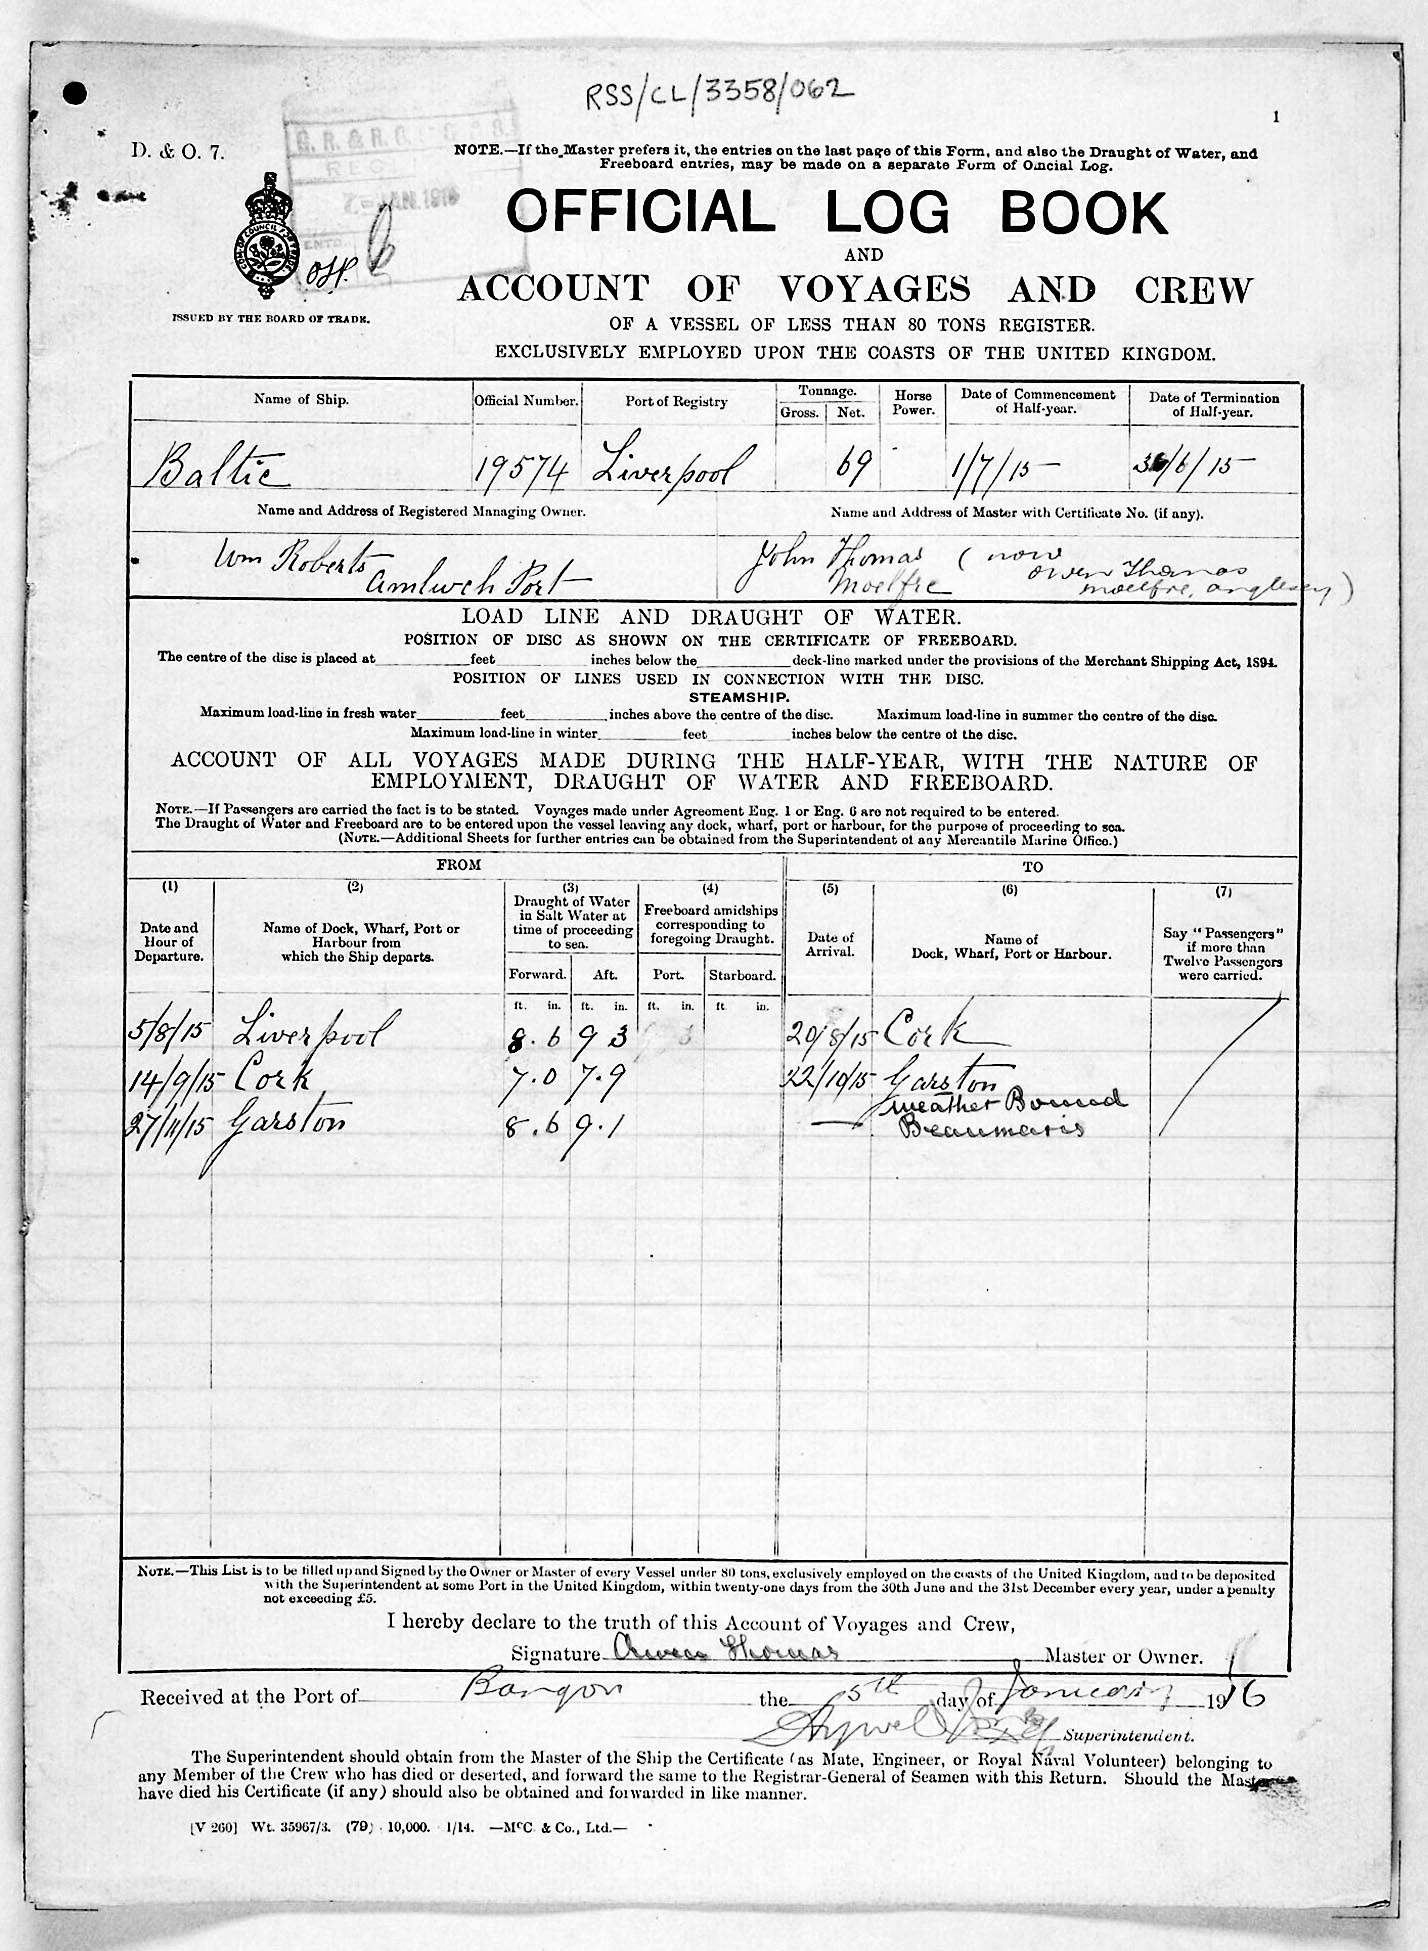 RSS/CL/3358/062
1
D. & O. 7.
NOTE.—If the Master prefers it, the entries on the last page of this Form, and also the Draught of Water, and
Freeboard entries, may be made on a separate Form of Official Log.
OFFICIAL LOG BOOK
AND
ACCOUNT OF VOYAGES AND CREW
OF A VESSEL OF LESS THAN 80 TONS REGISTER.
EXCLUSIVELY EMPLOYED UPON THE COASTS OF THE UNITED KINGDOM.
ISSUED BY THE BOARD OF TRADE.
Name of Ship. Official Number. Port of Registry Tonnage. Gross. Net. Horse Power. Date of Commencement of Half-year. Date of Termination of Half-year.
Baltic 19574 Liverpool 69 1/7/15 /6/15
Name and Address of Registered Managing Owner. Name and Address of Master with Certificate No. (if any).
Wm Roberts John Thomas (now
Amlwch Port Moelfre Owen Thomas
Moelfre, Anglesey)
LOAD LINE AND DRAUGHT OF WATER.
POSITION OF DISC AS SHOWN ON THE CERTIFICATE OF FREEBOARD.
The centre of the disc is placed at feet inches below the deck-line marked under the provisions of the Merchant Shipping Act, 1894.
POSITION OF LINES USED IN CONNECTION WITH THE DISC.
STEAMSHIP.
Maximum load-line in fresh water feet inches above the centre of the disc. Maximum load-line in summer the centre of the disc.
Maximum load-line in winter feet inches below the centre of the disc.
ACCOUNT OF ALL VOYAGES MADE DURING THE HALF-YEAR, WITH THE NATURE OF
EMPLOYMENT, DRAUGHT OF WATER AND FREEBOARD.
NOTE.—If Passengers are carried the fact is to be stated. Voyages made under Agreement Eng. 1 or Eng. 6 are not required to be entered.
The Draught of Water and Freeboard are to be entered upon the vessel leaving any dock, wharf, port or harbour, for the purpose of proceeding to sea.
(NOTE.—Additional Sheets for further entries can be obtained from the Superintendent of any Mercantile Marine Office.)
FROM TO
(1) (2) (3) (4) (5) (6) (7)
Date and Hour of Departure. Name of Dock, Wharf, Port or Harbour from which the Ship departs. Draught of Water in Salt Water at time of proceeding to sea. Freeboard amidships corresponding to foregoing Draught. Date of Arrival. Name of Dock, Wharf, Port or Harbour. Say "Passengers" if more than Twelve Passengers were carried.
Forward. Aft. Port. Starboard.
ft. in. ft. in. ft. in. ft in.
5/8/15 Liverpool 8.6 9 3 20/8/15 Cork
14/9/15 Cork 7.0 7.9 22/10/15 Garston
27/11/15 Garston 8.6 9.1 — Weather Bound
Beaumaris
NOTE.—This List is to be filled up and Signed by the Owner or Master of every Vessel under 80 tons, exclusively employed on the coasts of the United Kingdom, and to be deposited
with the Superintendent at some Port in the United Kingdom, within twenty-one days from the 30th June and the 31st December every year, under a penalty
not exceeding £5.
I hereby declare to the truth of this Account of Voyages and Crew,
Signature Owen Thomas Master or Owner.
Received at the Port of Bangor the 5th day of January 1916
Superintendent.
The Superintendent should obtain from the Master of the Ship the Certificate (as Mate, Engineer, or Royal Naval Volunteer) belonging to
any Member of the Crew who has died or deserted, and forward the same to the Registrar-General of Seamen with this Return. Should the Master
have died his Certificate (if any) should also be obtained and forwarded in like manner.
[V 260] Wt. 35967/3. (79) 10,000. 1/14. —McC & Co., Ltd.—